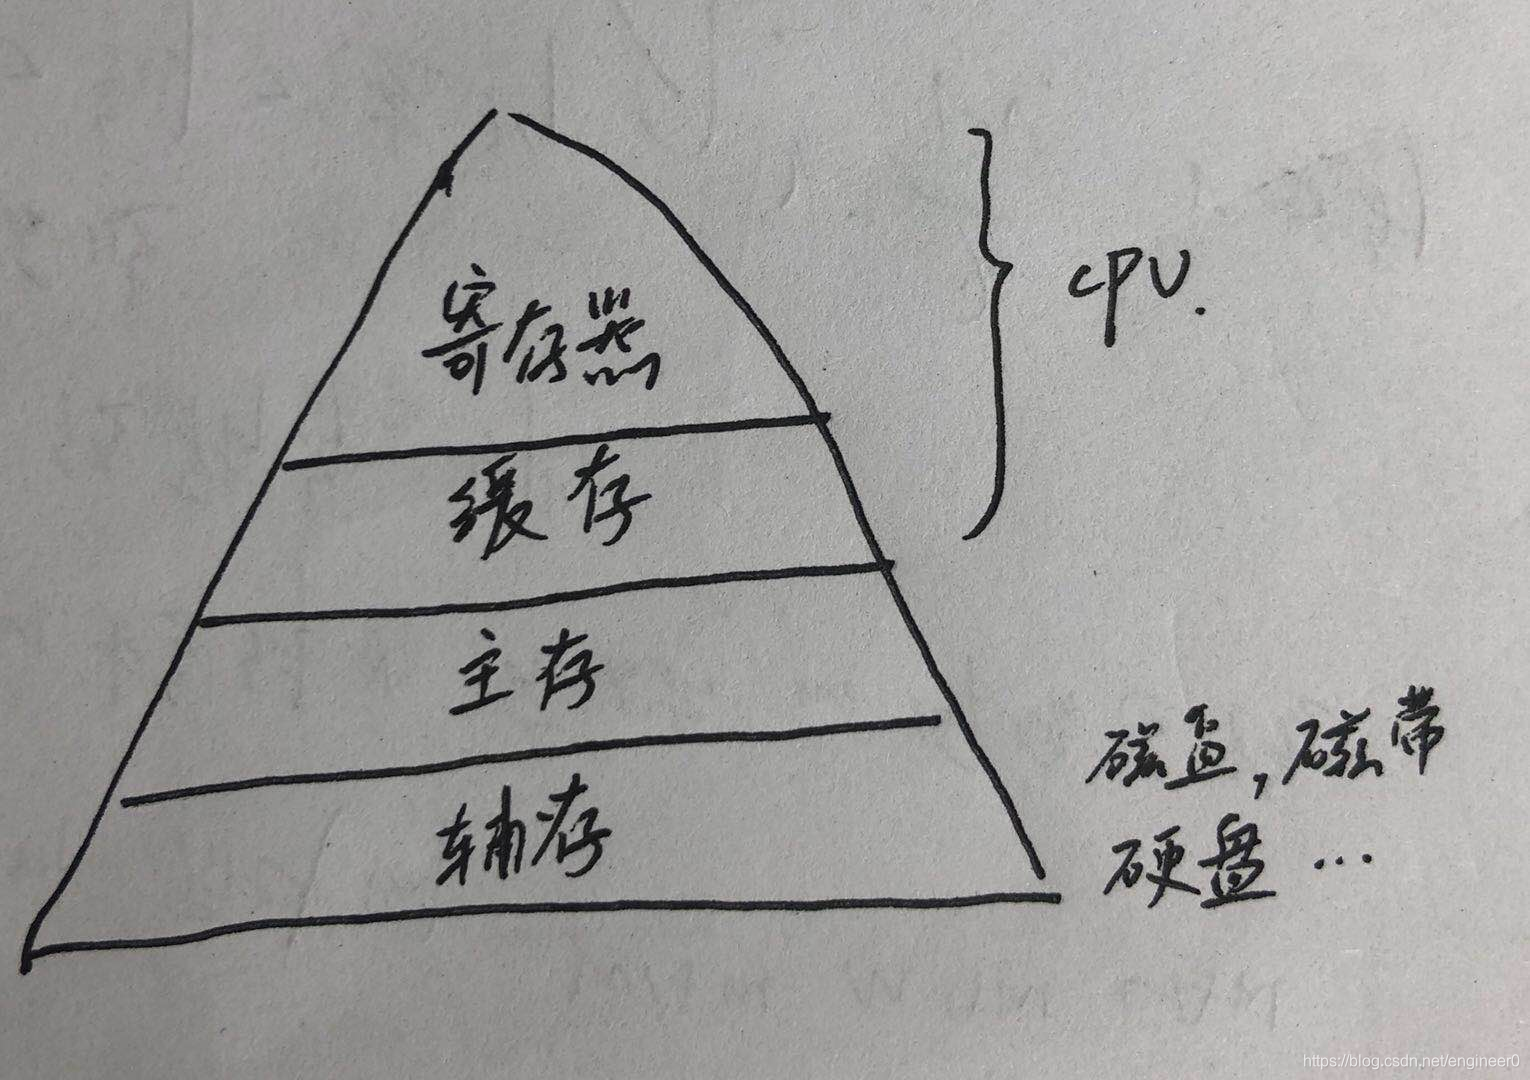 寄存器
CPU.
缓存
主存
辅存
磁盘,磁带
硬盘...
https://blog.csdn.net/engineer0